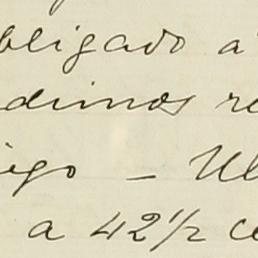 bligado á
dimos re
iego – Ul
a 42 1/2 ce